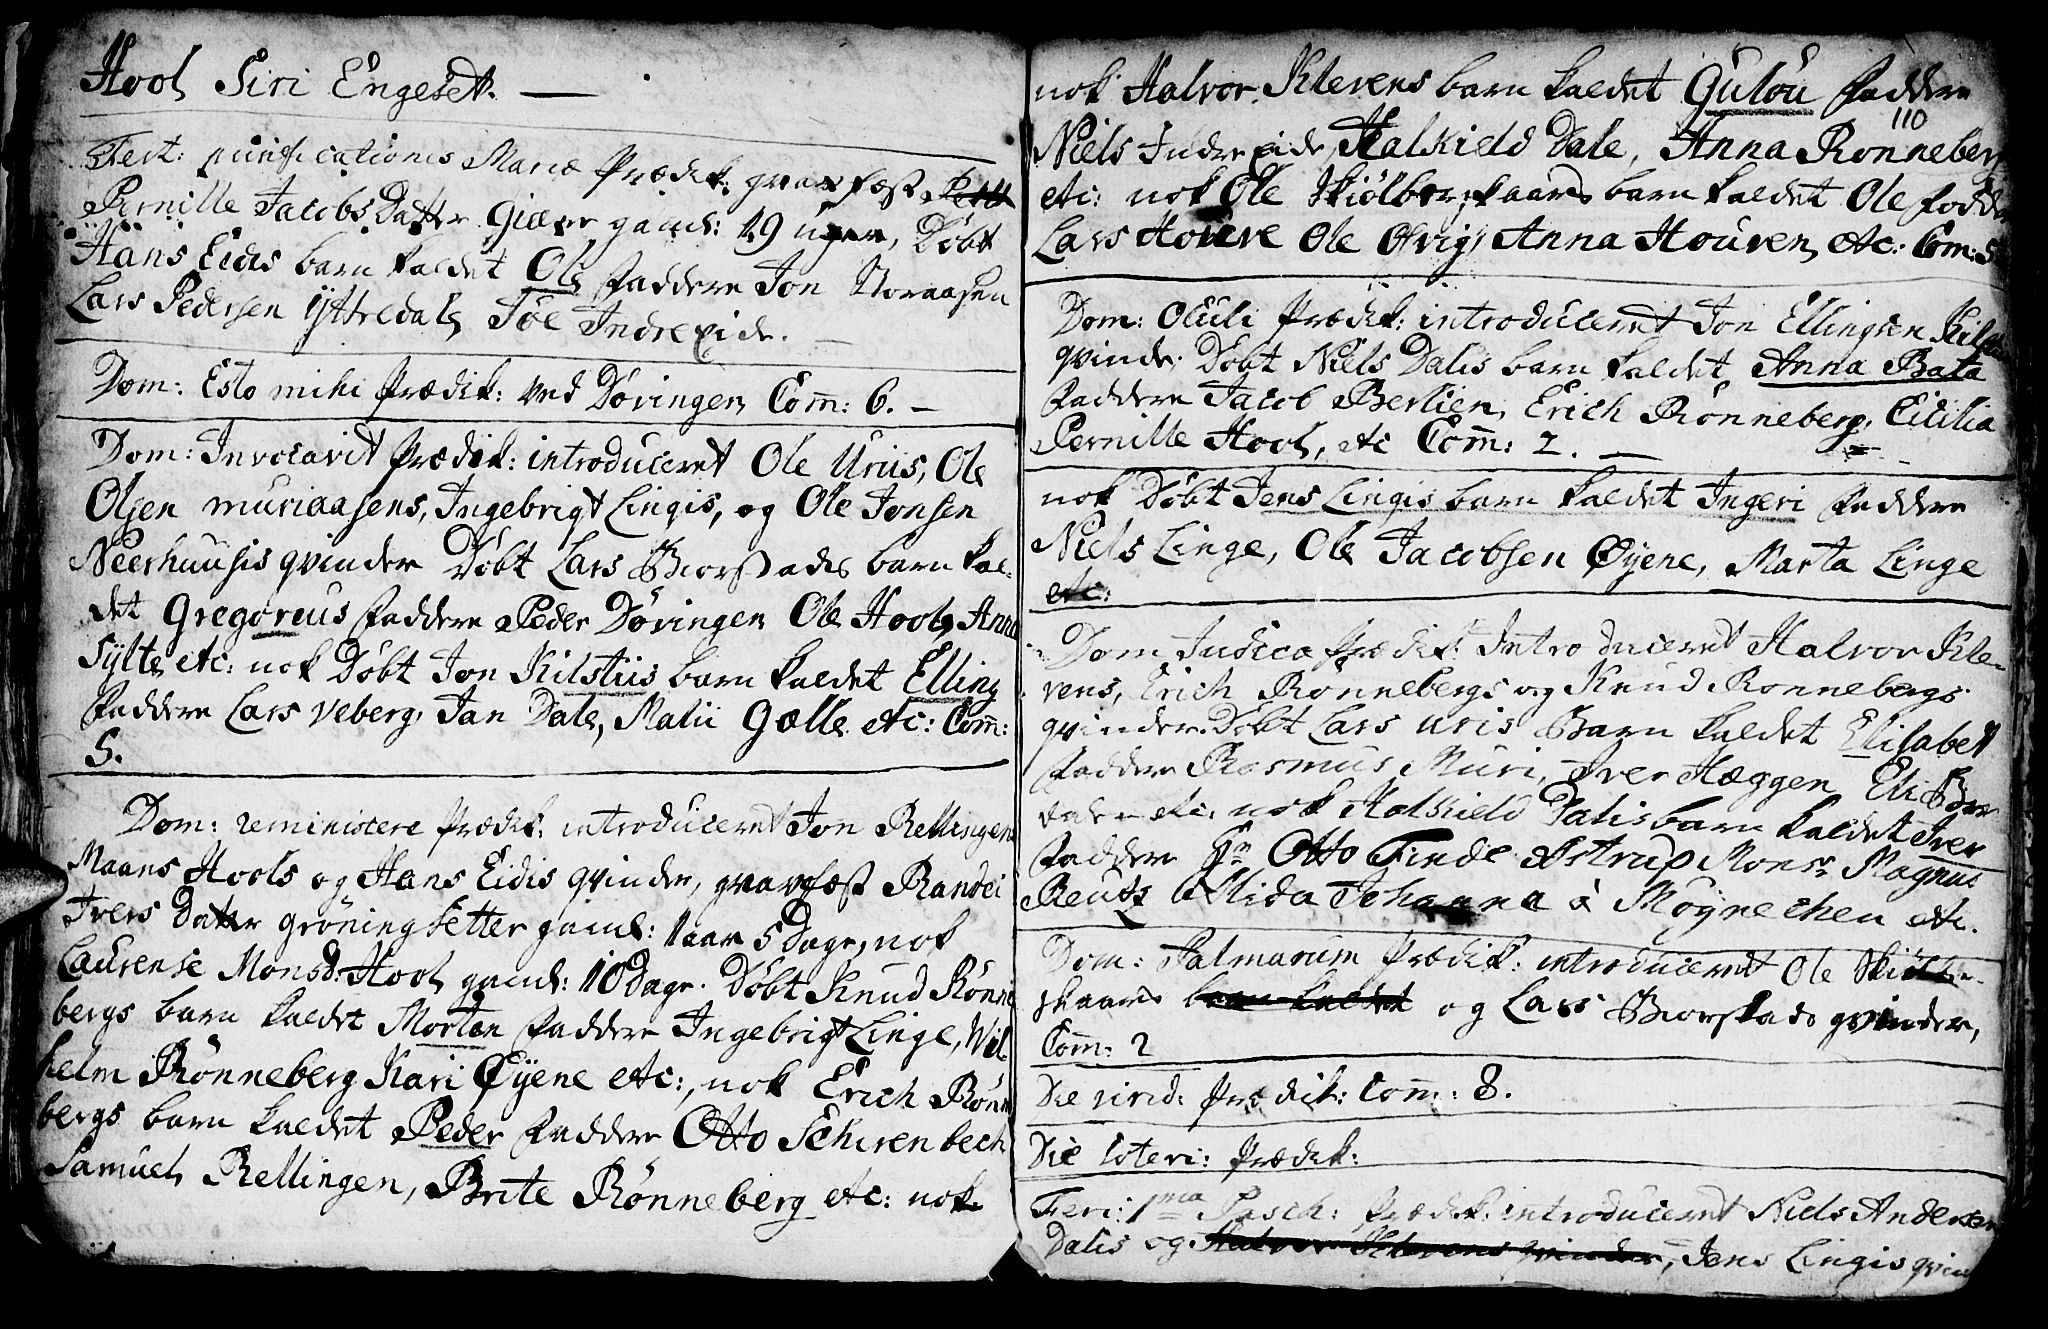 Hool Siri Engeset. —
Fest: purificationis Mariæ Prædik: gravfæst
Pernille Jacobs Datter Giærr gaml: 19 uger, Døbt
Hans Eidis barn kaldet Ole Faddere Jon Storaasen
Lars Pedersen Yttredal, Søe Indreeide. —
Dom: Esto mihi Prædik: ved Døvingen Com̄: 6. —
Dom: Invocavit Prædik: introduceret Ole Uriis, Ole
Olsen muriaasens, Ingebrigt Lingis, og Ole Jonsen
Neerhuusis qvinder Døbt Lars Biorstads barn kal-
det Gregoreus Faddere Peder Døvingen Ole Hool, Anna
Sylte etc: nok Døbt Jon Kilstiis barn kaldet Elling
Faddere Lars Veberg, Jan Dale, Malii Gælle etc: Com̄:
5.
Dom: reminiscere Prædik: introduceret Jon Rellingens
Maans Hools og Hans Eidis qvinder, gravfæst Randei
Ivers Datter grøningsetter gaml: 1 aar 5 Dage, nok
Laurense Monsd: Hool gaml: 10 Dage. Døbt Knud Rønne
bergs barn kaldet Morten Faddere Ingebrigt Linge, Wil-
helm Rønneberg Kari Øyene etc:, nok Erich Rønne
bergs barn kaldet Peder Faddere Otto Schirenbech
Samuel Rellingen, Brite Rønneberg etc: nok
nok Halvor Klevens barn kaldet Gulou Faddere
110
Niels Indreeide, Halkield Dale, Anna Rønneberg
etc: nok Ole Skiølberskaars barn kaldet Ole fodd
Lars Houre Ole Ølvig, Anna Houven, etc: Com: 5
Dom: Oculi Prædik: introduceret Jon Ellingsen Kilsti
qvinde. Døbt Niels Dalis barn kaldet Anna Bata
Faddere Jacob Berlien, Erich Rønneberg, Cicilia
Pernille Hool, etc Com̄: 2. —
nok Døbt Jens Lingis barn kaldet Ingeri Faddere
Niels Linge, Ole Jacobsen Øyene, Marta Linge
etc:
Dom Judica Prædik: Introduceret Halvor Kle-
vens, Erich Rønnebergs og Knud Rønnebergs
qvinder. Døbt Lars Uris Barn kaldet Elisabet
Faddere Rasmus Muri, Iver Hæggen Eli
etc. nok Halkield Dalis barn kaldet Iver
Faddere Otto Finde Astrup Monsr Magnus
Reutz Johanna à Møynechen etc.
Dom: Palmarum Prædik: introduceret Ole Skiølber-
skaars barn kaldet og Lars Biorstads qvinder,
Com̄: 2
Die virid: Prædik: Com̄: 8.
Die ceteri: Prædik:
Feri: 1ma Pasch: Prædik: introduceret Niels Andersen
Dalis og Halvor Klevens qvinder, Jens Lingis qvin